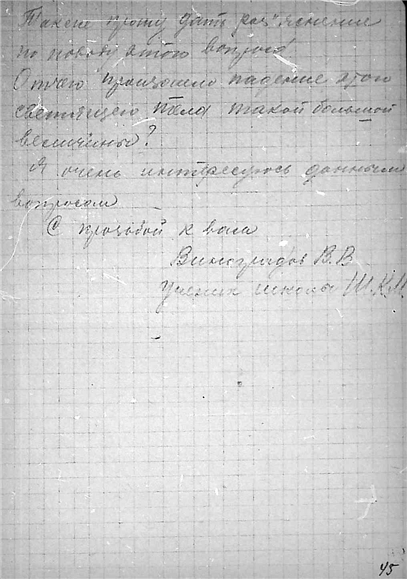 Также прошу дать раз'яснение
по поводу этого вопроса
Отчего произошло падение этого
светящего тела такой большой
величины?
Я очень интересуюсь данным
вопросом
С прозьбой к вам
Виноградов В.В
ученик школы Ш.К.М.
45